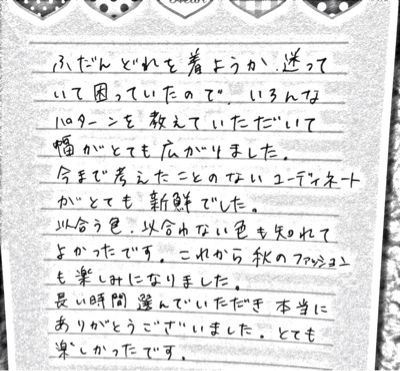 ふだんどれを着ようか、迷って
いて困っていたので、いろんな
パターンを教えていただいて
幅がとても広がりました。
今まで考えたことのないコーディネート
がとても新鮮でした。
似合う色、似合わない色も知れて
よかったです。これから秋のファッション
も楽しみになりました。
長い時間選んでいただき本当に
ありがとうございました。とても
楽しかったです。